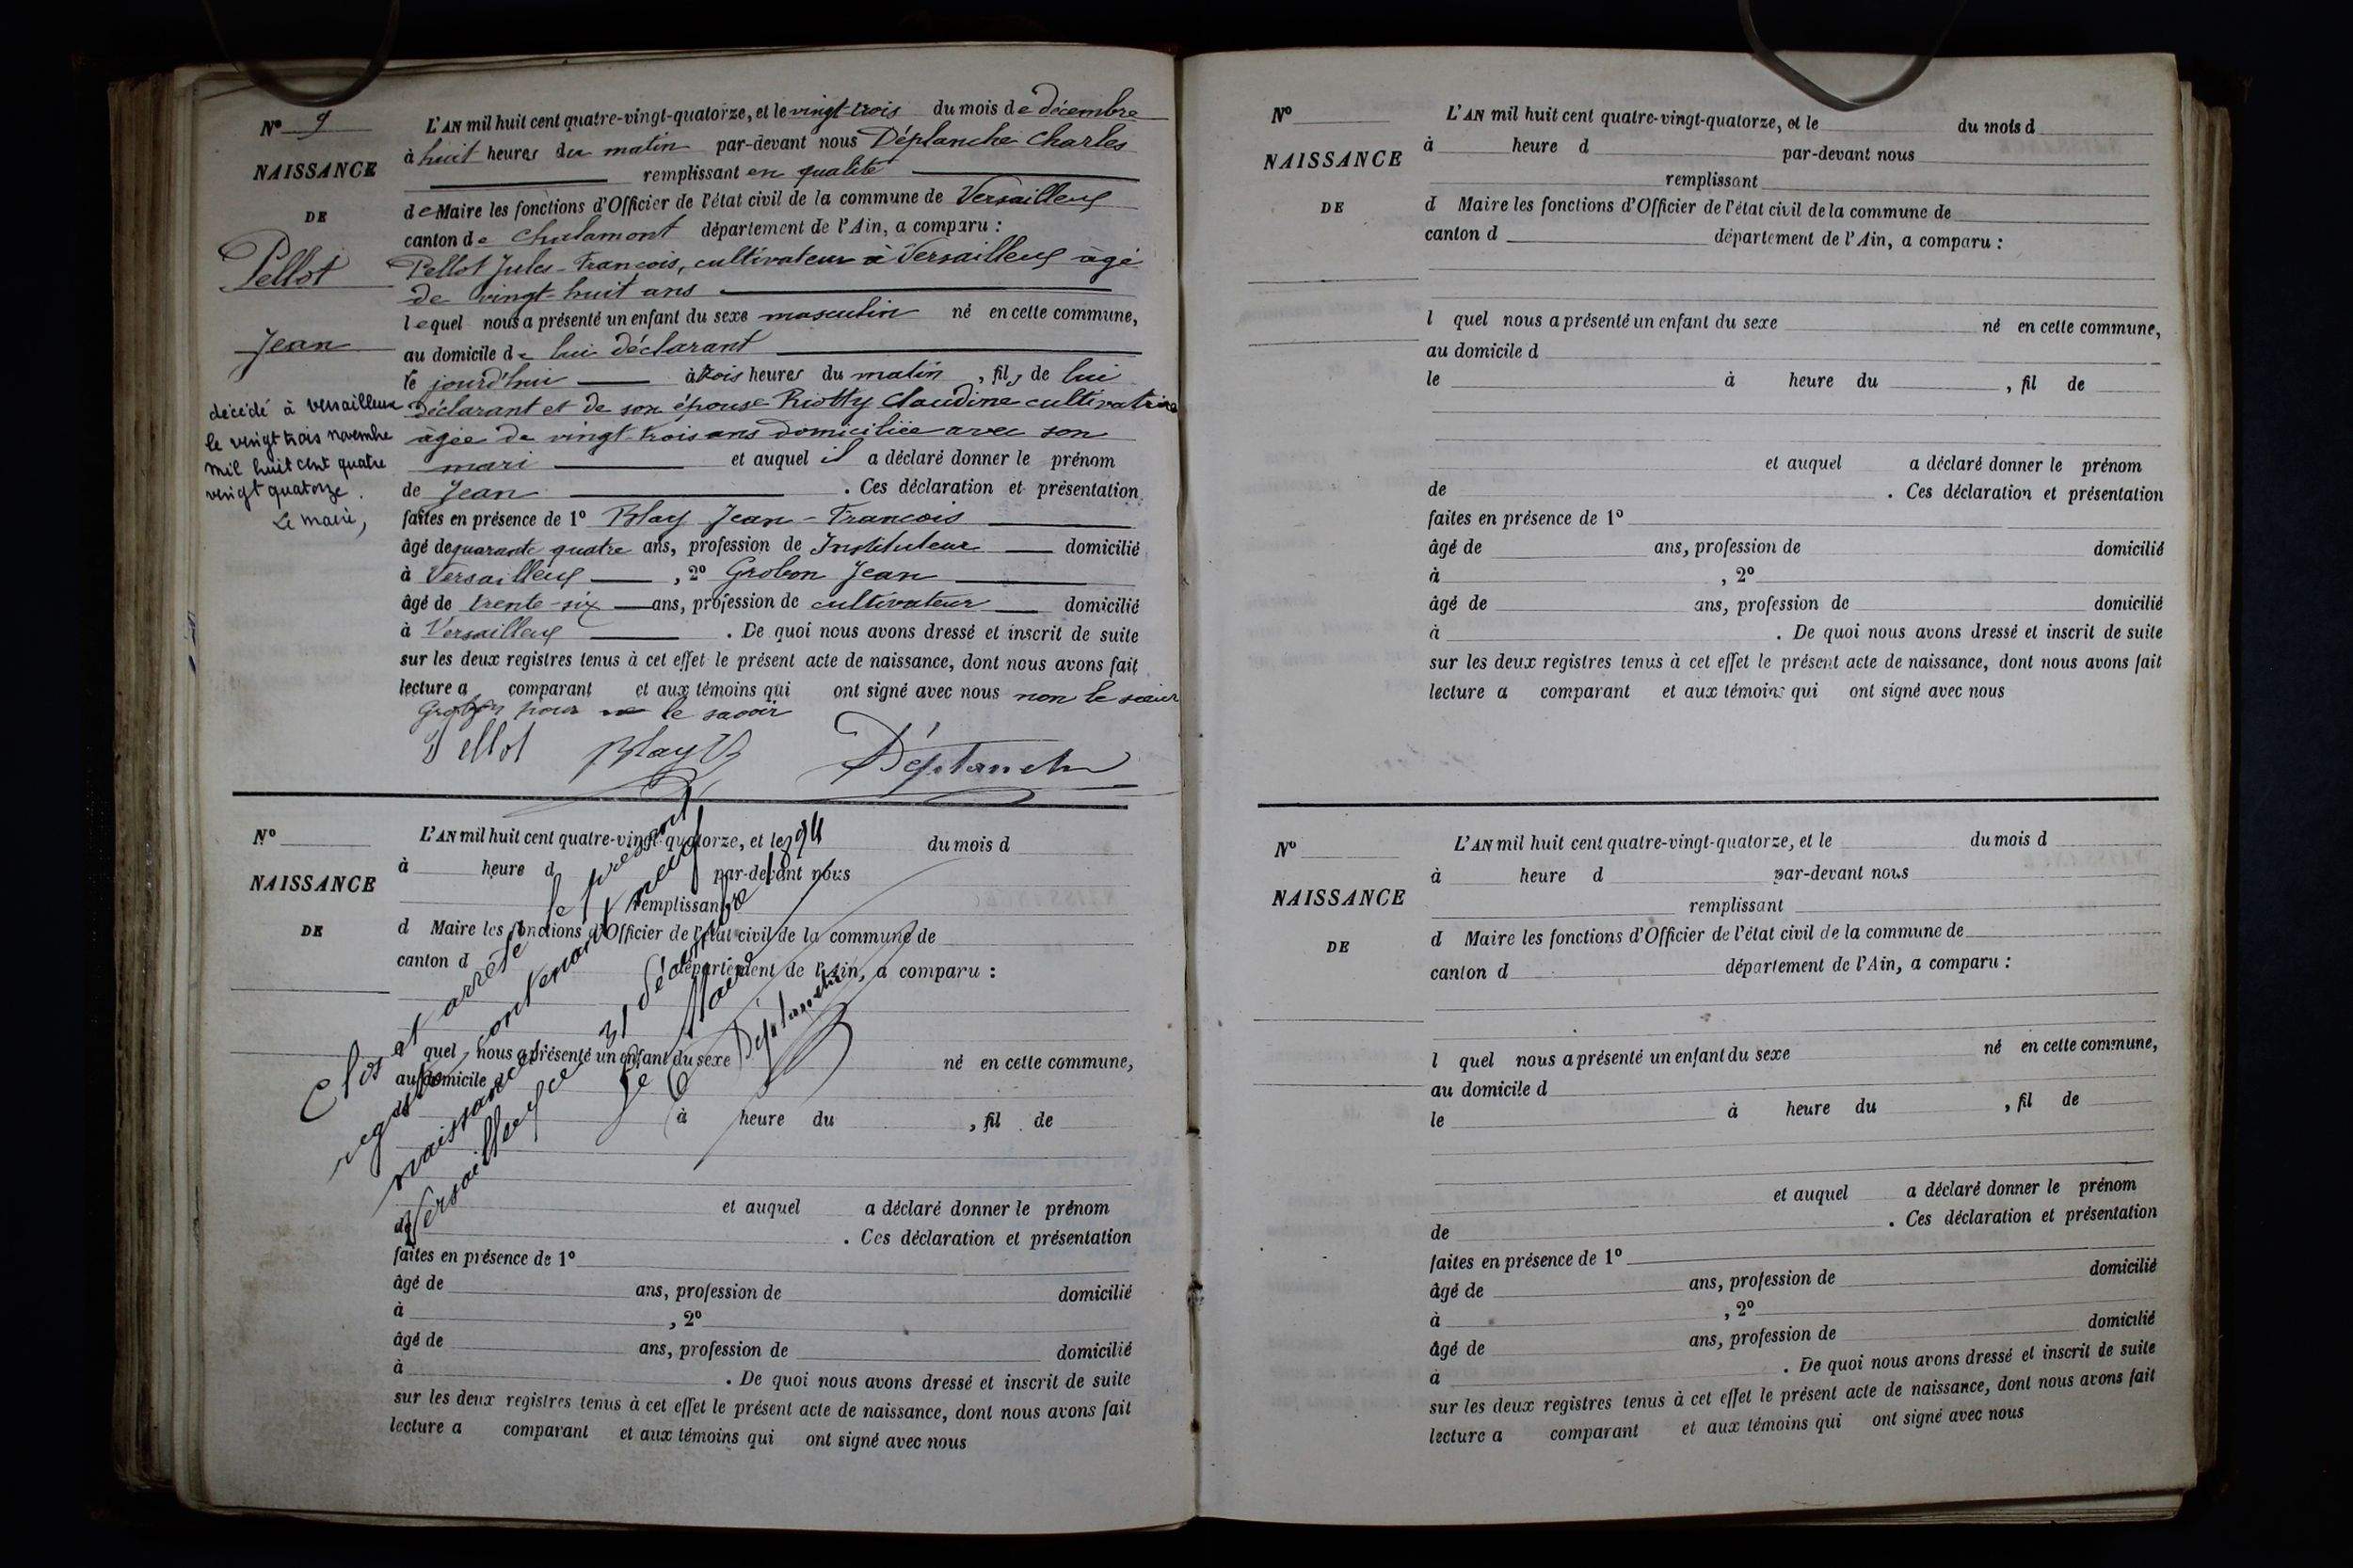 N° 9
NAISSANCE
DE
Pellot
Jean
décédé à Versailleux
le vingt trois novembre
mil huit cent quatre
vingt quatorze.
Le maire,
L'AN mil huit cent quatre-vingt-quatorze, et le vingt-trois du mois de décembre
à huit heures du matin par-devant nous Déplanche Charles
remplissant en qualité
de Maire les fonctions d'Officier de l'état civil de la commune de Versailleux
canton de Chalamont département de l'Ain, a comparu :
Pellot Jules-François, cultivateur à Versailleux âgé
de vingt-huit ans
lequel nous a présenté un enfant du sexe masculin né en cette commune,
au domicile de lui déclarant
le jourd'hui à trois heures du matin, fils de lui
déclarant et de son épouse Riotty Claudine cultivatrice
âgée de vingt-trois ans domiciliée avec son
mari et auquel il a déclaré donner le prénom
de Jean. Ces déclaration et présentation
faites en présence de 1° Blay Jean-François
âgé de quarante quatre ans, profession de Instituteur domicilié
à Versailleux, 2° Grobon Jean
âgé de trente-six ans, profession de cultivateur domicilié
à Versailleux. De quoi nous avons dressé et inscrit de suite
sur les deux registres tenus à cet effet le présent acte de naissance, dont nous avons fait
lecture a comparant et aux témoins qui ont signé avec nous non le sieur
Grobon pour ne le savoir
Pellot Blay Déplanche
N°
NAISSANCE
DE
L'AN mil huit cent quatre-vingt-quatorze, et le du mois d
à heure d par-devant nous
remplissant
d Maire les fonctions d'Officier de l'état civil de la commune de
canton d département de l'Ain, a comparu :
l quel nous a présenté un enfant du sexe né en cette commune,
au domicile d
à heure du , fil de
et auquel a déclaré donner le prénom
de . Ces déclaration et présentation
faites en présence de 1°
âgé de ans, profession de domicilié
à , 2°
âgé de ans, profession de domicilié
à . De quoi nous avons dressé et inscrit de suite
sur les deux registres tenus à cet effet le présent acte de naissance, dont nous avons fait
lecture a comparant et aux témoins qui ont signé avec nous
Clos et arrêté le présent
registre contenant neuf
naissances
Versailleux ce 31 décembre 1894
Le Maire
Déplanche
N°
NAISSANCE
DE
L'AN mil huit cent quatre-vingt-quatorze, et le du mois d
à heure d par-devant nous
remplissant
d Maire les fonctions d'Officier de l'état civil de la commune de
canton d département de l'Ain, a comparu :
l quel nous a présenté un enfant du sexe né en cette commune,
au domicile d
le à heure du , fil de
et auquel a déclaré donner le prénom
de . Ces déclaration et présentation
faites en présence de 1°
âgé de ans, profession de domicilié
à , 2°
âgé de ans, profession de domicilié
à . De quoi nous avons dressé et inscrit de suite
sur les deux registres tenus à cet effet le présent acte de naissance, dont nous avons fait
lecture a comparant et aux témoins qui ont signé avec nous
N°
NAISSANCE
DE
L'AN mil huit cent quatre-vingt-quatorze, et le du mois d
à heure d par-devant nous
remplissant
d Maire les fonctions d'Officier de l'état civil de la commune de
canton d département de l'Ain, a comparu :
l quel nous a présenté un enfant du sexe né en cette commune,
au domicile d
le à heure du , fil de
et auquel a déclaré donner le prénom
de . Ces déclaration et présentation
faites en présence de 1°
âgé de ans, profession de domicilié
à , 2°
âgé de ans, profession de domicilié
à . De quoi nous avons dressé et inscrit de suite
sur les deux registres tenus à cet effet le présent acte de naissance, dont nous avons fait
lecture a comparant et aux témoins qui ont signé avec nous